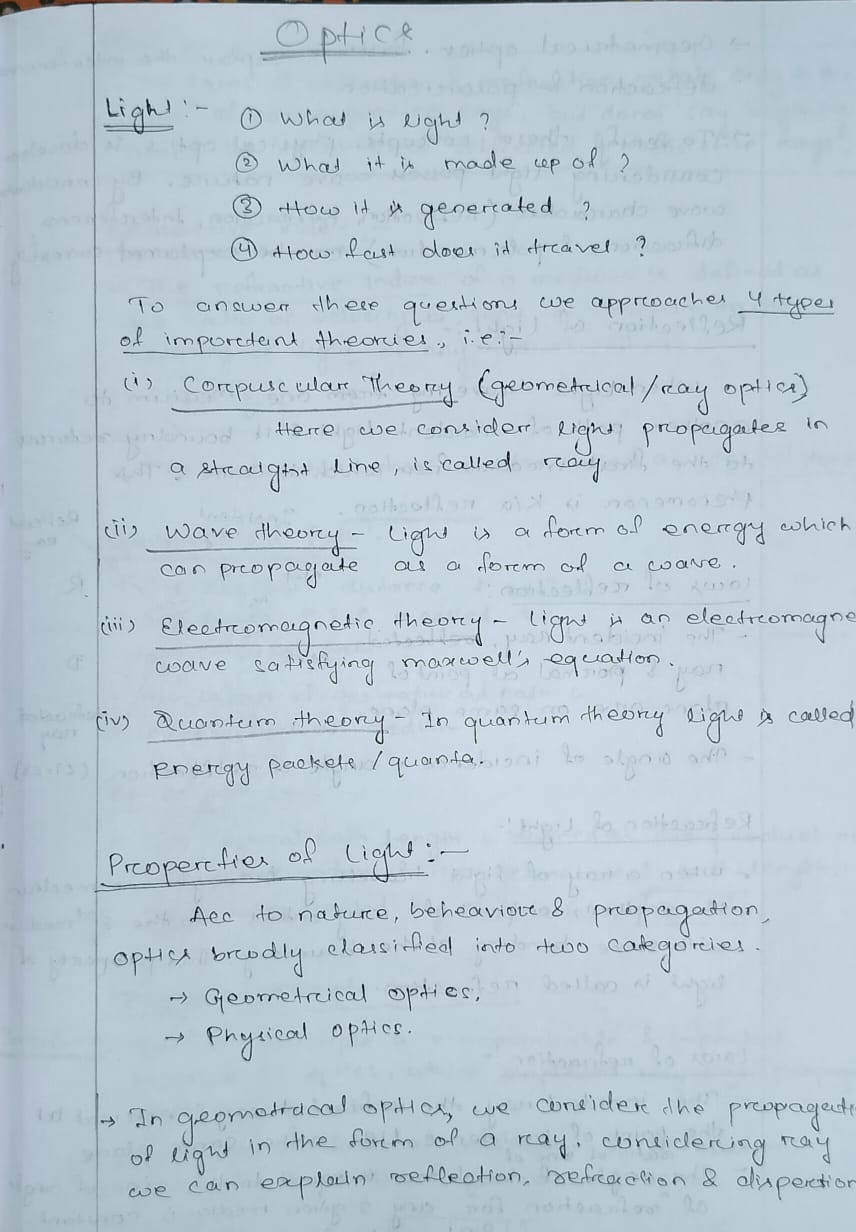 Optics.
Light :-
① What is light ?
② What it is made up of ?
③ How it is generated ?
④ How fast does it travel ?
To answer these questions we approaches 4 types
of important theories, i.e:-
(i) Corpuscular Theory (geometrical/ray optics)
Here we consider light propagates in
a straight line, is called ray
(ii) Wave theory - Light is a form of energy which
can propagate as a form of a wave.
(iii) Electromagnetic theory - light is an electromagne
wave satisfying maxwell's equation.
(iv) Quantum theory - In quantum theory light is called
energy packets / quanta.
Properties of Light :-
Acc to nature, beheaviour & propagation,
optics brodly classified into two categories.
→ Geometrical optics,
→ Physical optics.
→ In geometracal optics, we consider the propagati
of light in the form of a ray. considering ray
we can explain reflection, refraction & dispertion